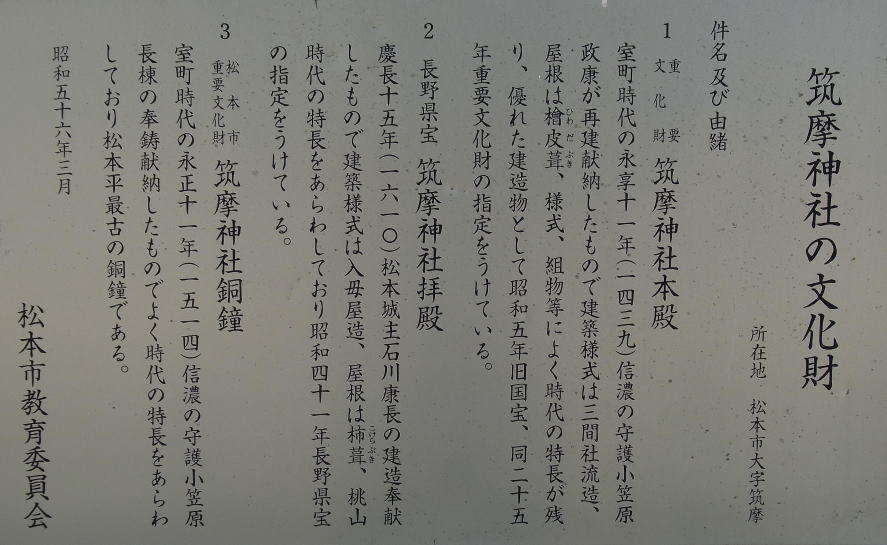 筑摩神社の文化財
所在地 松本市大字筑摩
件名及び由緒
1 重要文化財 筑摩神社本殿
室町時代の永享十一年(一四三九)信濃の守護小笠原
政康が再建献納したもので建築様式は三間社流造、
屋根は檜皮葺、様式、組物等によく時代の特長が残
ひわだぶき
り、優れた建造物として昭和五年旧国宝、同二十五
年重要文化財の指定をうけている。
2 長野県宝 筑摩神社拝殿
慶長十五年(一六一〇)松本城主石川康長の建造奉献
したもので建築様式は入母屋造、屋根は柿葺、桃山
こけらぶき
時代の特長をあらわしており昭和四十一年長野県宝
の指定をうけている。
3 松本市重要文化財 筑摩神社銅鐘
室町時代の永正十一年(一五一四)信濃の守護小笠原
長棟の奉鋳献納したものでよく時代の特長をあらわ
しており松本平最古の銅鐘である。
昭和五十六年三月
松本市教育委員会